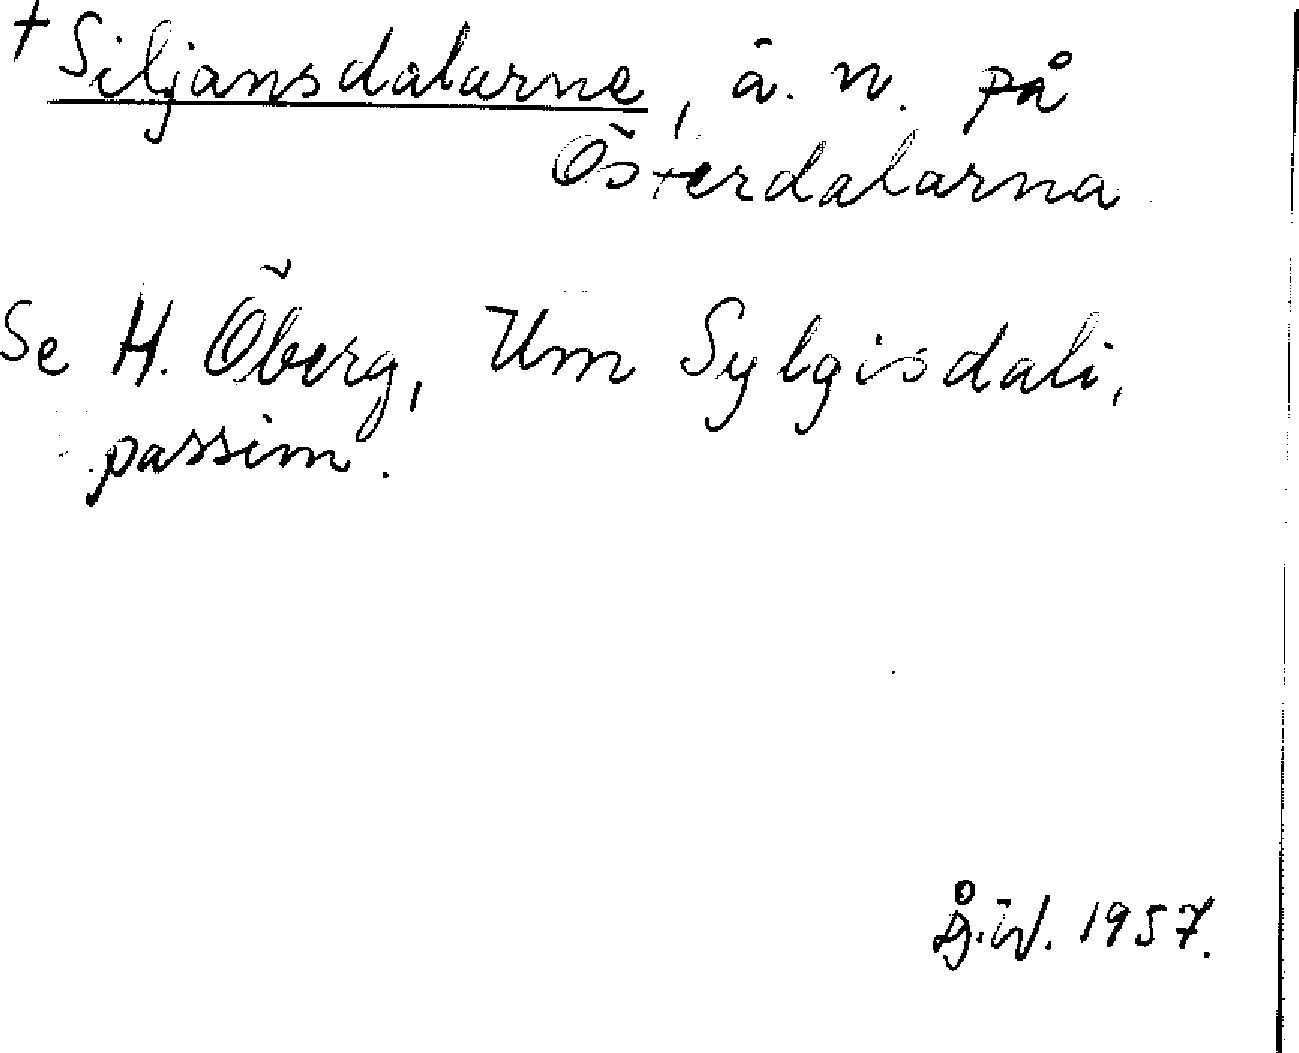 + Siljansdalarne, ä. n. på
Österdalarna
Se H. Öberg, Um Sylgisdali,
passim.
1957.